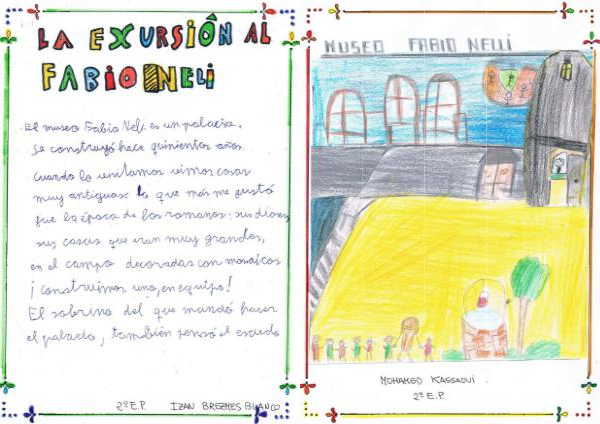 LA EXCURSIÓN AL
FABIO NELI
El museo Fabio Neli es un palacio.
Se construyó hace quinientos años.
Cuando lo visitamos vimos cosas
muy antiguas: lo que más me gustó
fue la época de los romanos: sus dioses
sus casas que eran muy grandes,
en el campo decoradas con mosaicos
¡construimos uno, en equipo!
El sobrino del que mandó hacer
el palacio, también pensó el escudo
2º E.P. IZAN BREZMES BLANCO
MUSEO FABIO NELLI
MOHAMED KASSAOUI.
2º E.P.